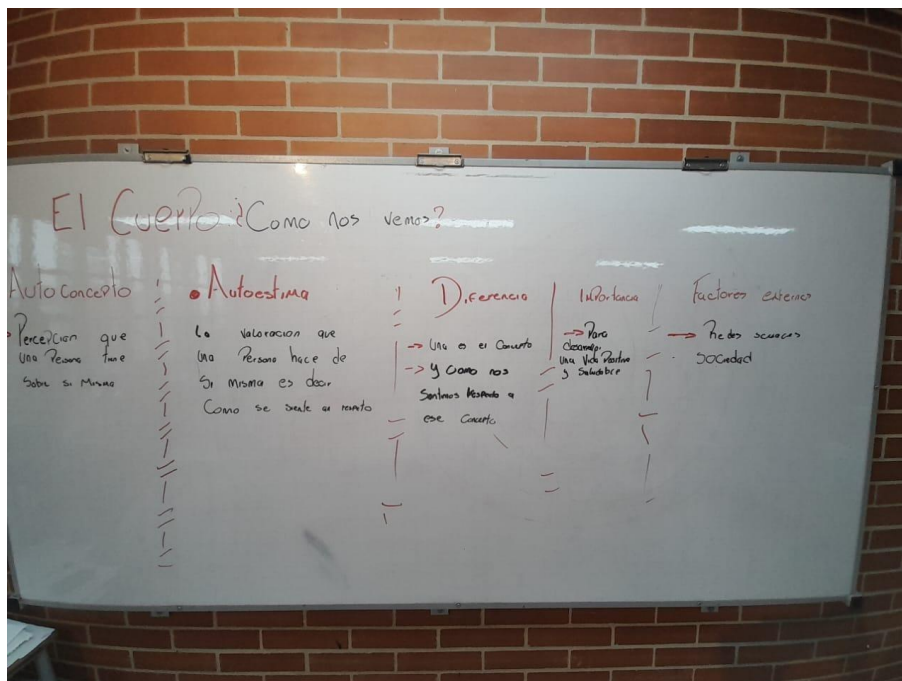 El Cuerpo ¿Como nos vemos?
Autoconcepto
Percepcion que
una Persona tiene
Sobre si Misma
• Autoestima
La valoracion que
una Persona hace de
Si misma es decir
Como se siente al respecto
Diferencia
→ Una es el Concepto
→ Y Como nos
Sentimos Respecto a
ese Concepto
Importancia
→ Para
desarrollar
una Vida Positiva
y Saludable
Factores externos
→ Redes sociales
• Sociedad